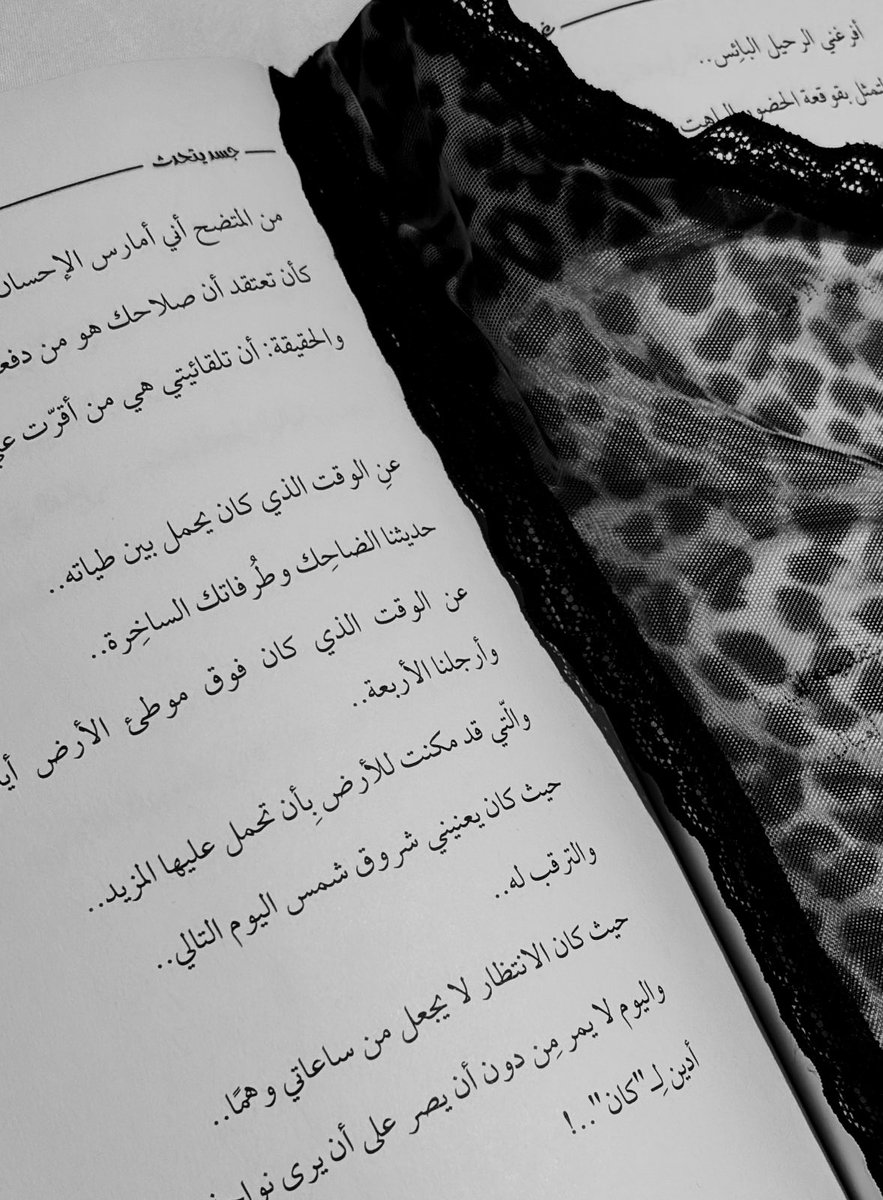 جسد يتحدث
من المتضح أني أمارس الإحسان
كأن تعتقد أن صلاحك هو من
والحقيقة: أن تلقائيتي هي من أقرّت
عنِ الوقت الذي كان يحمل بين طياته..
حديثنا الضاحِك وطُرفاتك الساخِرة..
عن الوقت الذي كان فوق موطئ الأرض
وأرجلنا الأربعة..
والّتي قد مكنت للأرض بِأن تحمل عليها المزيد..
حيث كان يعنيني شروق شمس اليوم التالي..
والترقب له..
حيث كان الانتظار لا يجعل من ساعاتي وهمًا..
واليوم لا يمر مِن دون أن يصر على أن يرى
أدين لِـ"كان"..!
أفرغني الرحيل البائِس..
بقوقعة الحضور الباهت